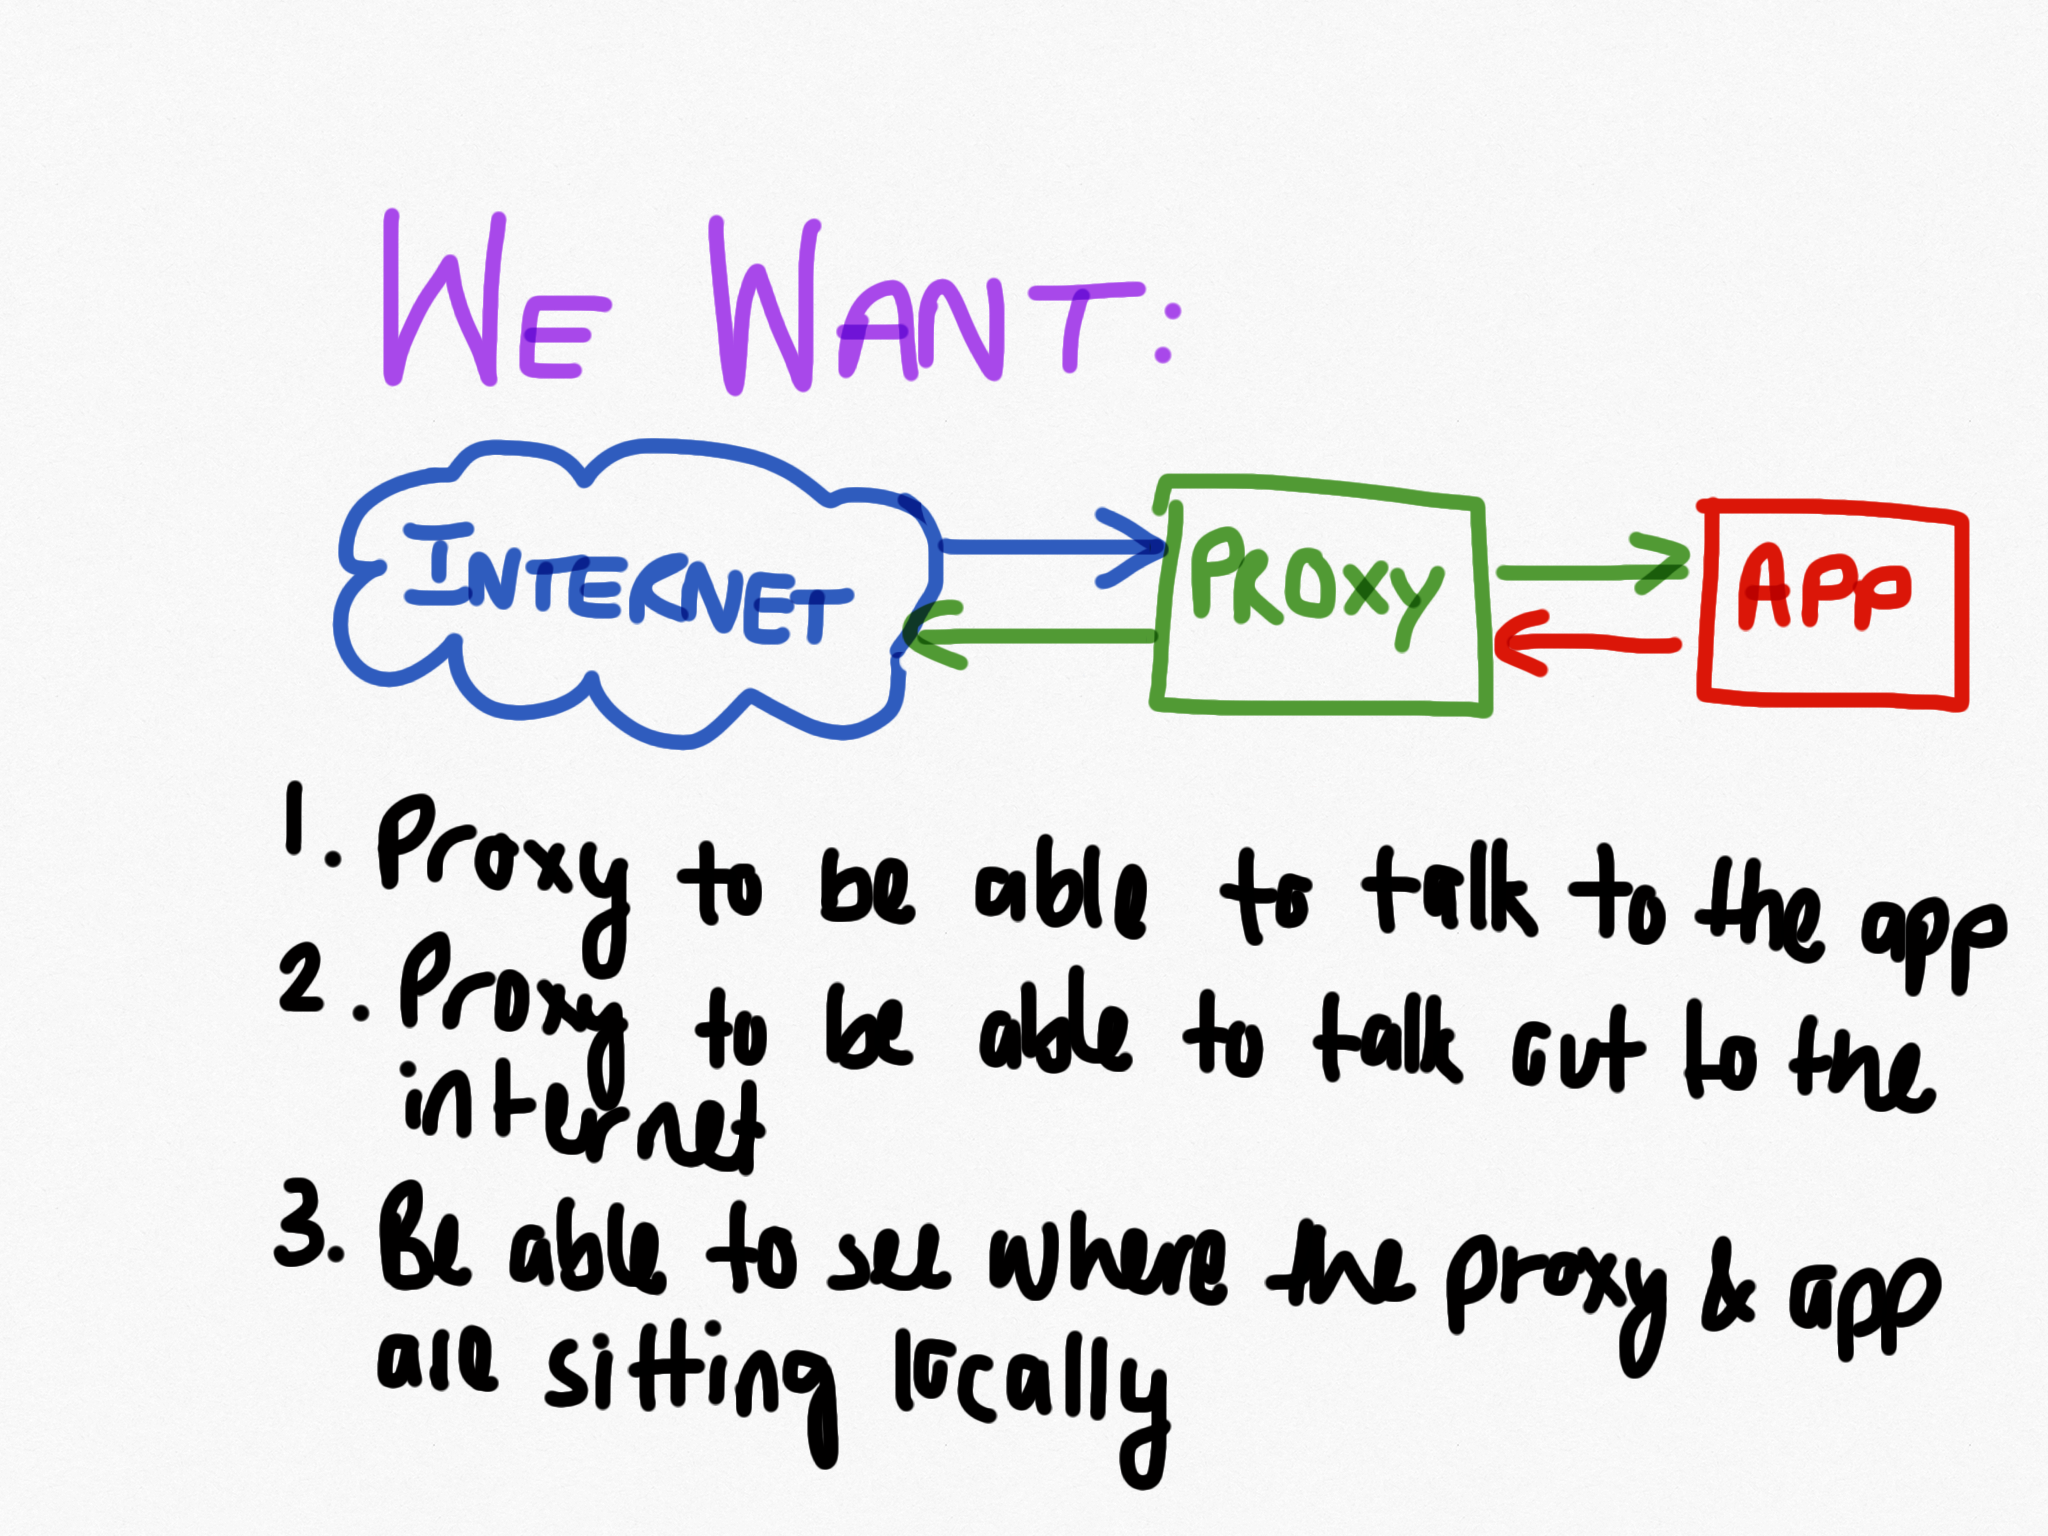 WE WANT:
INTERNET PROXY APP
1. Proxy to be able to talk to the app
2. Proxy to be able to talk out to the
internet
3. Be able to see where the proxy & app
are sitting locally